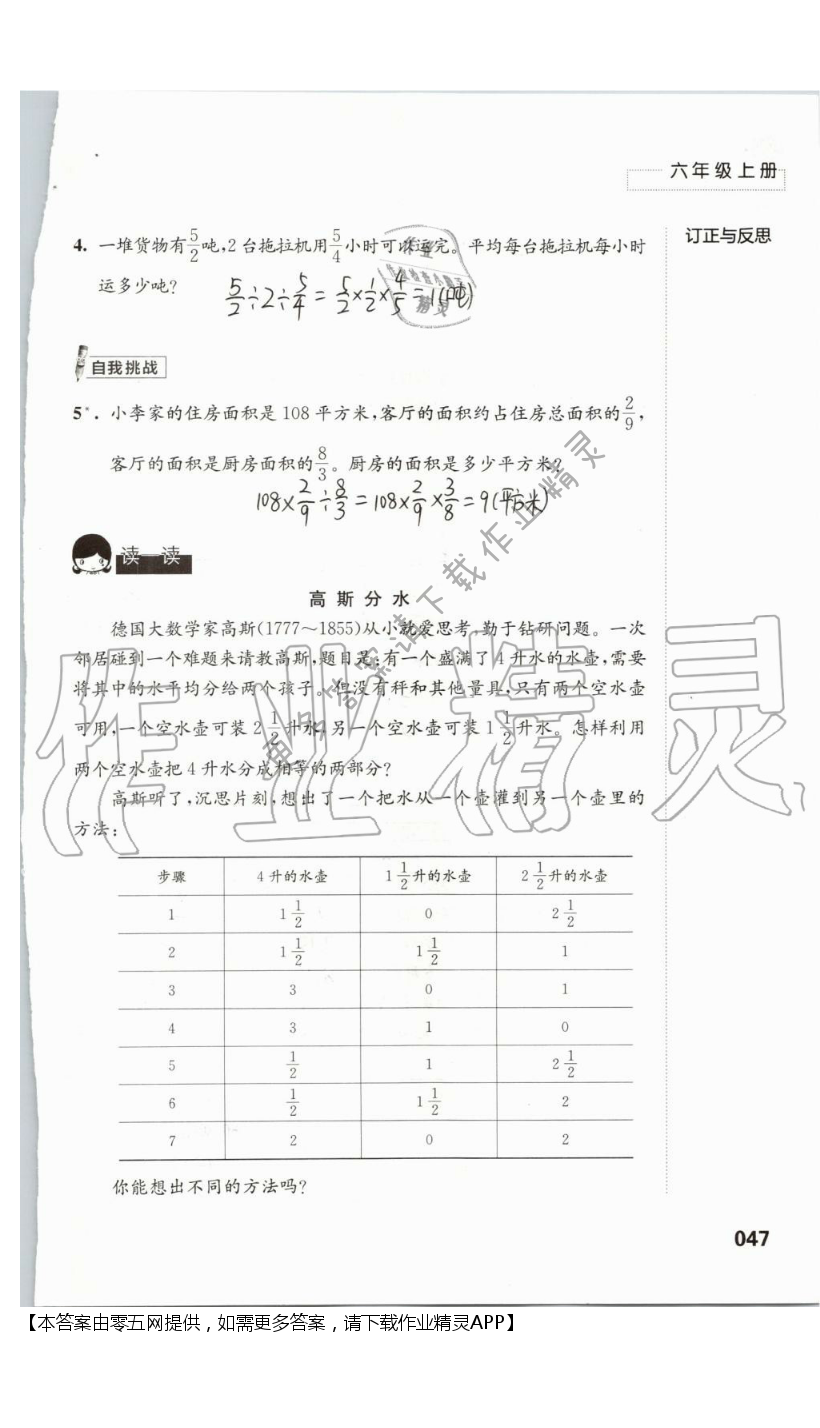 六年级上册
订正与反思
4. 一堆货物有5/2吨,2台拖拉机用5/4小时可以运完。平均每台拖拉机每小时
运多少吨?
5/2÷2÷5/4=5/2×1/2×4/5=1(吨)
自我挑战
5*. 小李家的住房面积是108平方米,客厅的面积约占住房总面积的2/9,
客厅的面积是厨房面积的8/3。厨房的面积是多少平方米?
108×2/9÷8/3=108×2/9×3/8=9(平方米)
读一读
高斯分水
德国大数学家高斯(1777~1855)从小就爱思考,勤于钻研问题。一次
邻居碰到一个难题来请教高斯,题目是:有一个盛满了4升水的水壶,需要
将其中的水平均分给两个孩子。但没有秤和其他量具,只有两个空水壶
可用,一个空水壶可装2 1/2升水,另一个空水壶可装1 1/2升水。怎样利用
两个空水壶把4升水分成相等的两部分?
高斯听了,沉思片刻,想出了一个把水从一个壶灌到另一个壶里的
方法:
步骤 4升的水壶 1 1/2升的水壶 2 1/2升的水壶
1 1 1/2 0 2 1/2
2 1 1/2 1 1/2 1
3 3 0 1
4 3 1 0
5 1/2 1 2 1/2
6 1/2 1 1/2 2
7 2 0 2
你能想出不同的方法吗?
047
作业精灵
更多答案请下载作业精灵
【本答案由零五网提供,如需更多答案,请下载作业精灵APP】